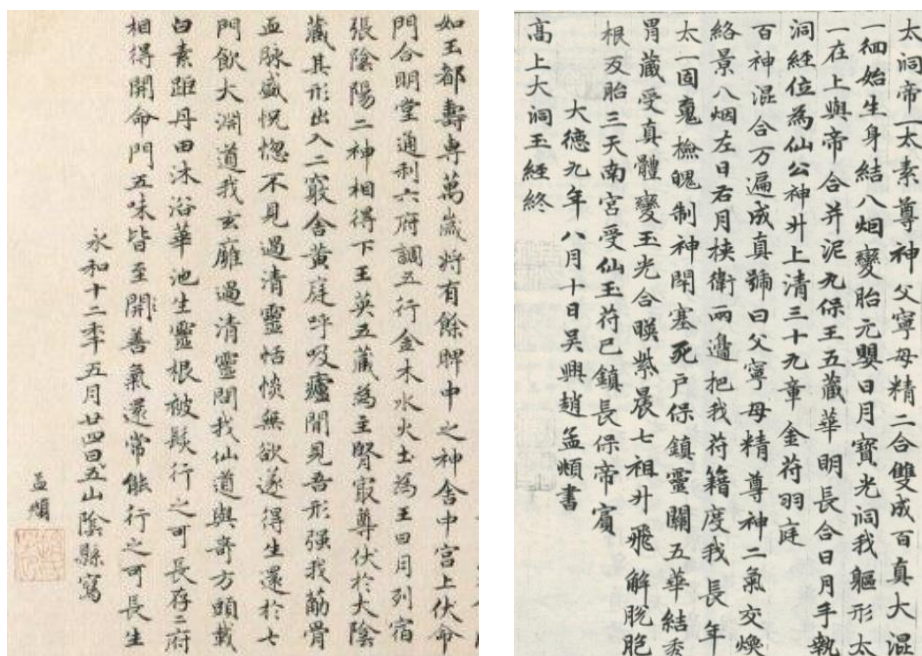 如王都壽專萬歲將有餘脾中之神舍中宮上伏命
門合明堂通利六府調五行金木水火土為王日月列宿
張陰陽二神相得下王英五藏為主腎寂尊伏於大陰
藏其形出入二竅舍黃庭呼吸廬間見吾形强我筋骨
血脉盛恍惚不見過清靈恬惔無欲遂得生還於七
門飲大淵道我玄廱過清靈問我仙道與奇方頭載
白素距丹田沐浴華池生靈根被髮行之可長存二府
相得開命門五味皆至開善氣還常能行之可長生
永和十二年五月廿四日五山陰縣寫
孟頫
太洞帝一太素尊神父寧母精二合雙成百真大混
一徊始生身結八烟變胎元嬰日月寶光洞我軀形太
一在上與帝合并泥丸保王五藏華明長合日月手執
洞經位為仙公神升上清三十九章金符羽庭
百神混合万遍成真號曰父寧母精尊神二氣交煥
絡景八烟左日右月挾衛兩邊把我符籍度我長年
太一固䰟檢魄制神閉塞死戶保鎮靈關五華結秀
胃藏受真體變玉光合暎紫晨七祖升飛解脫胞
根反胎三天南宮受仙玉符已鎮長保帝賓
大德九年八月十日吳興趙孟頫書
高上大洞玉經終